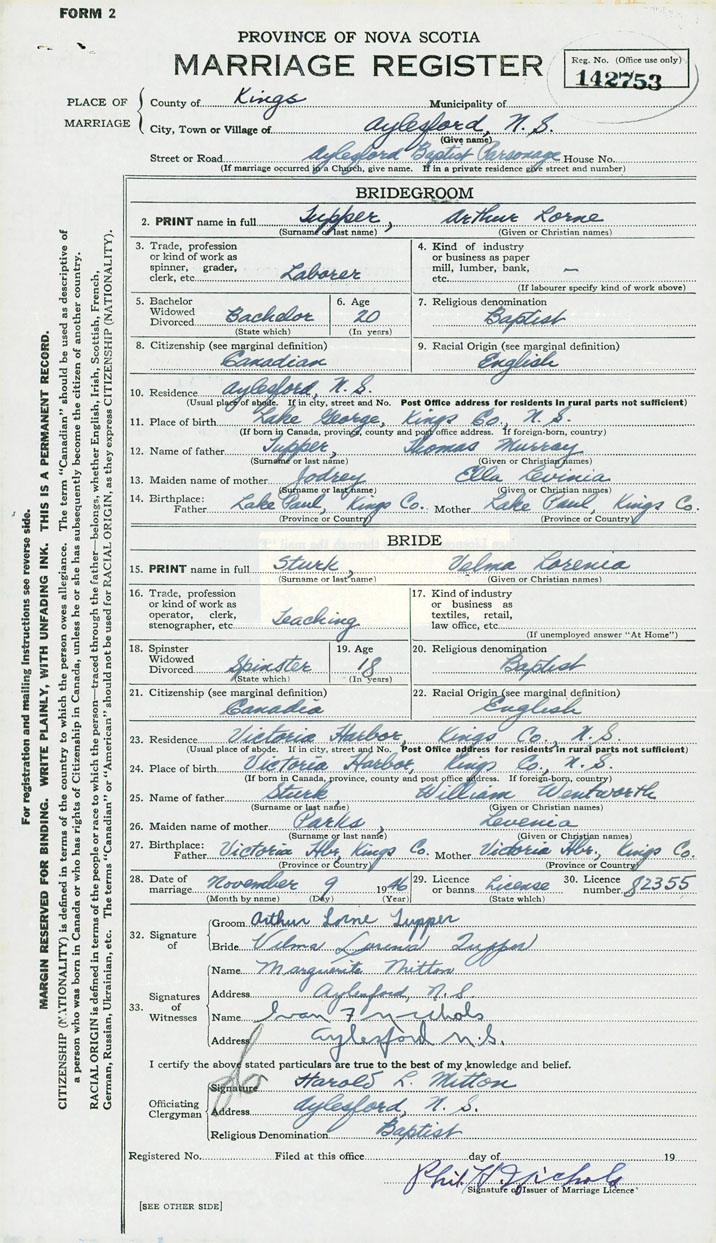 FORM 2
PROVINCE OF NOVA SCOTIA
MARRIAGE REGISTER
Reg. No. (Office use only)
142753
PLACE OF MARRIAGE
County of Kings Municipality of
City, Town or Village of Aylesford, N. S.
(Give name)
Street or Road Aylesford Baptist Parsonage House No.
(If marriage occurred in a Church, give name. If in a private residence give street and number)
BRIDEGROOM
2. PRINT name in full Tupper, Arthur Lorne
(Surname or last name) (Given or Christian names)
3. Trade, profession or kind of work as spinner, grader, clerk, etc. Laborer
4. Kind of industry or business as paper mill, lumber, bank, etc. —
(If labourer specify kind of work above)
5. Bachelor Widowed Divorced Bachelor
(State which)
6. Age 20
(In years)
7. Religious denomination
Baptist
8. Citizenship (see marginal definition)
Canadian
9. Racial Origin (see marginal definition)
English
10. Residence Aylesford, N. S.
(Usual place of abode. If in city, street and No. Post Office address for residents in rural parts not sufficient)
11. Place of birth Lake George, Kings Co., N. S.
(If born in Canada, province, county and post office address. If foreign-born, country)
12. Name of father Tupper, Thomas Murray
(Surname or last name) (Given or Christian names)
13. Maiden name of mother Jodrey Ella Levinia
(Surname or last name) (Given or Christian names)
14. Birthplace: Father Lake Paul, Kings Co. Mother Lake Paul, Kings Co.
(Province or Country) (Province or Country)
BRIDE
15. PRINT name in full Sturk, Velma Lorenia
(Surname or last name) (Given or Christian names)
16. Trade, profession or kind of work as operator, clerk, stenographer, etc. Teaching
17. Kind of industry or business as textiles, retail, law office, etc.
(If unemployed answer "At Home")
18. Spinster Widowed Divorced Spinster
(State which)
19. Age 18
(In years)
20. Religious denomination
Baptist
21. Citizenship (see marginal definition)
Canadia
22. Racial Origin (see marginal definition)
English
23. Residence Victoria Harbor, Kings Co., N. S.
(Usual place of abode. If in city, street and No. Post Office address for residents in rural parts not sufficient)
24. Place of birth Victoria Harbor, Kings Co., N. S.
(If born in Canada, province, county and post office address. If foreign-born, country)
25. Name of father Sturk William Wentworth
(Surname or last name) (Given or Christian names)
26. Maiden name of mother Parks, Levenia
(Surname or last name) (Given or Christian names)
27. Birthplace: Father Victoria Hbr, Kings Co. Mother Victoria Hbr., Kings Co.
(Province or Country) (Province or Country)
28. Date of marriage November 9 1946
(Month by name) (Day) (Year)
29. Licence or banns License
(State which)
30. Licence number 82355
32. Signature of
Groom Arthur Lorne Tupper
Bride Velma Lorenia Tupper
33. Signatures of Witnesses
Name Marguerite Mitton
Address Aylesford, N. S
Name Ivan F Nichols
Address Aylesford N.S.
I certify the above stated particulars are true to the best of my knowledge and belief.
Officiating Clergyman
Signature Harold L. Mitton
Address Aylesford, N. S.
Religious Denomination Baptist
Registered No. Filed at this office day of 19
Phil H Nichols
Signature of Issuer of Marriage Licence
[SEE OTHER SIDE]
For registration and mailing instructions see reverse side.
MARGIN RESERVED FOR BINDING. WRITE PLAINLY, WITH UNFADING INK. THIS IS A PERMANENT RECORD.
CITIZENSHIP (NATIONALITY) is defined in terms of the country to which the person owes allegiance. The term "Canadian" should be used as descriptive of
a person who was born in Canada or who has rights of Citizenship in Canada, unless he or she has subsequently become the citizen of another country.
RACIAL ORIGIN is defined in terms of the people or race to which the person—traced through the father—belongs, whether English, Irish, Scottish, French,
German, Russian, Ukrainian, etc. The terms "Canadian" or "American" should not be used for RACIAL ORIGIN, as they express CITIZENSHIP (NATIONALITY).